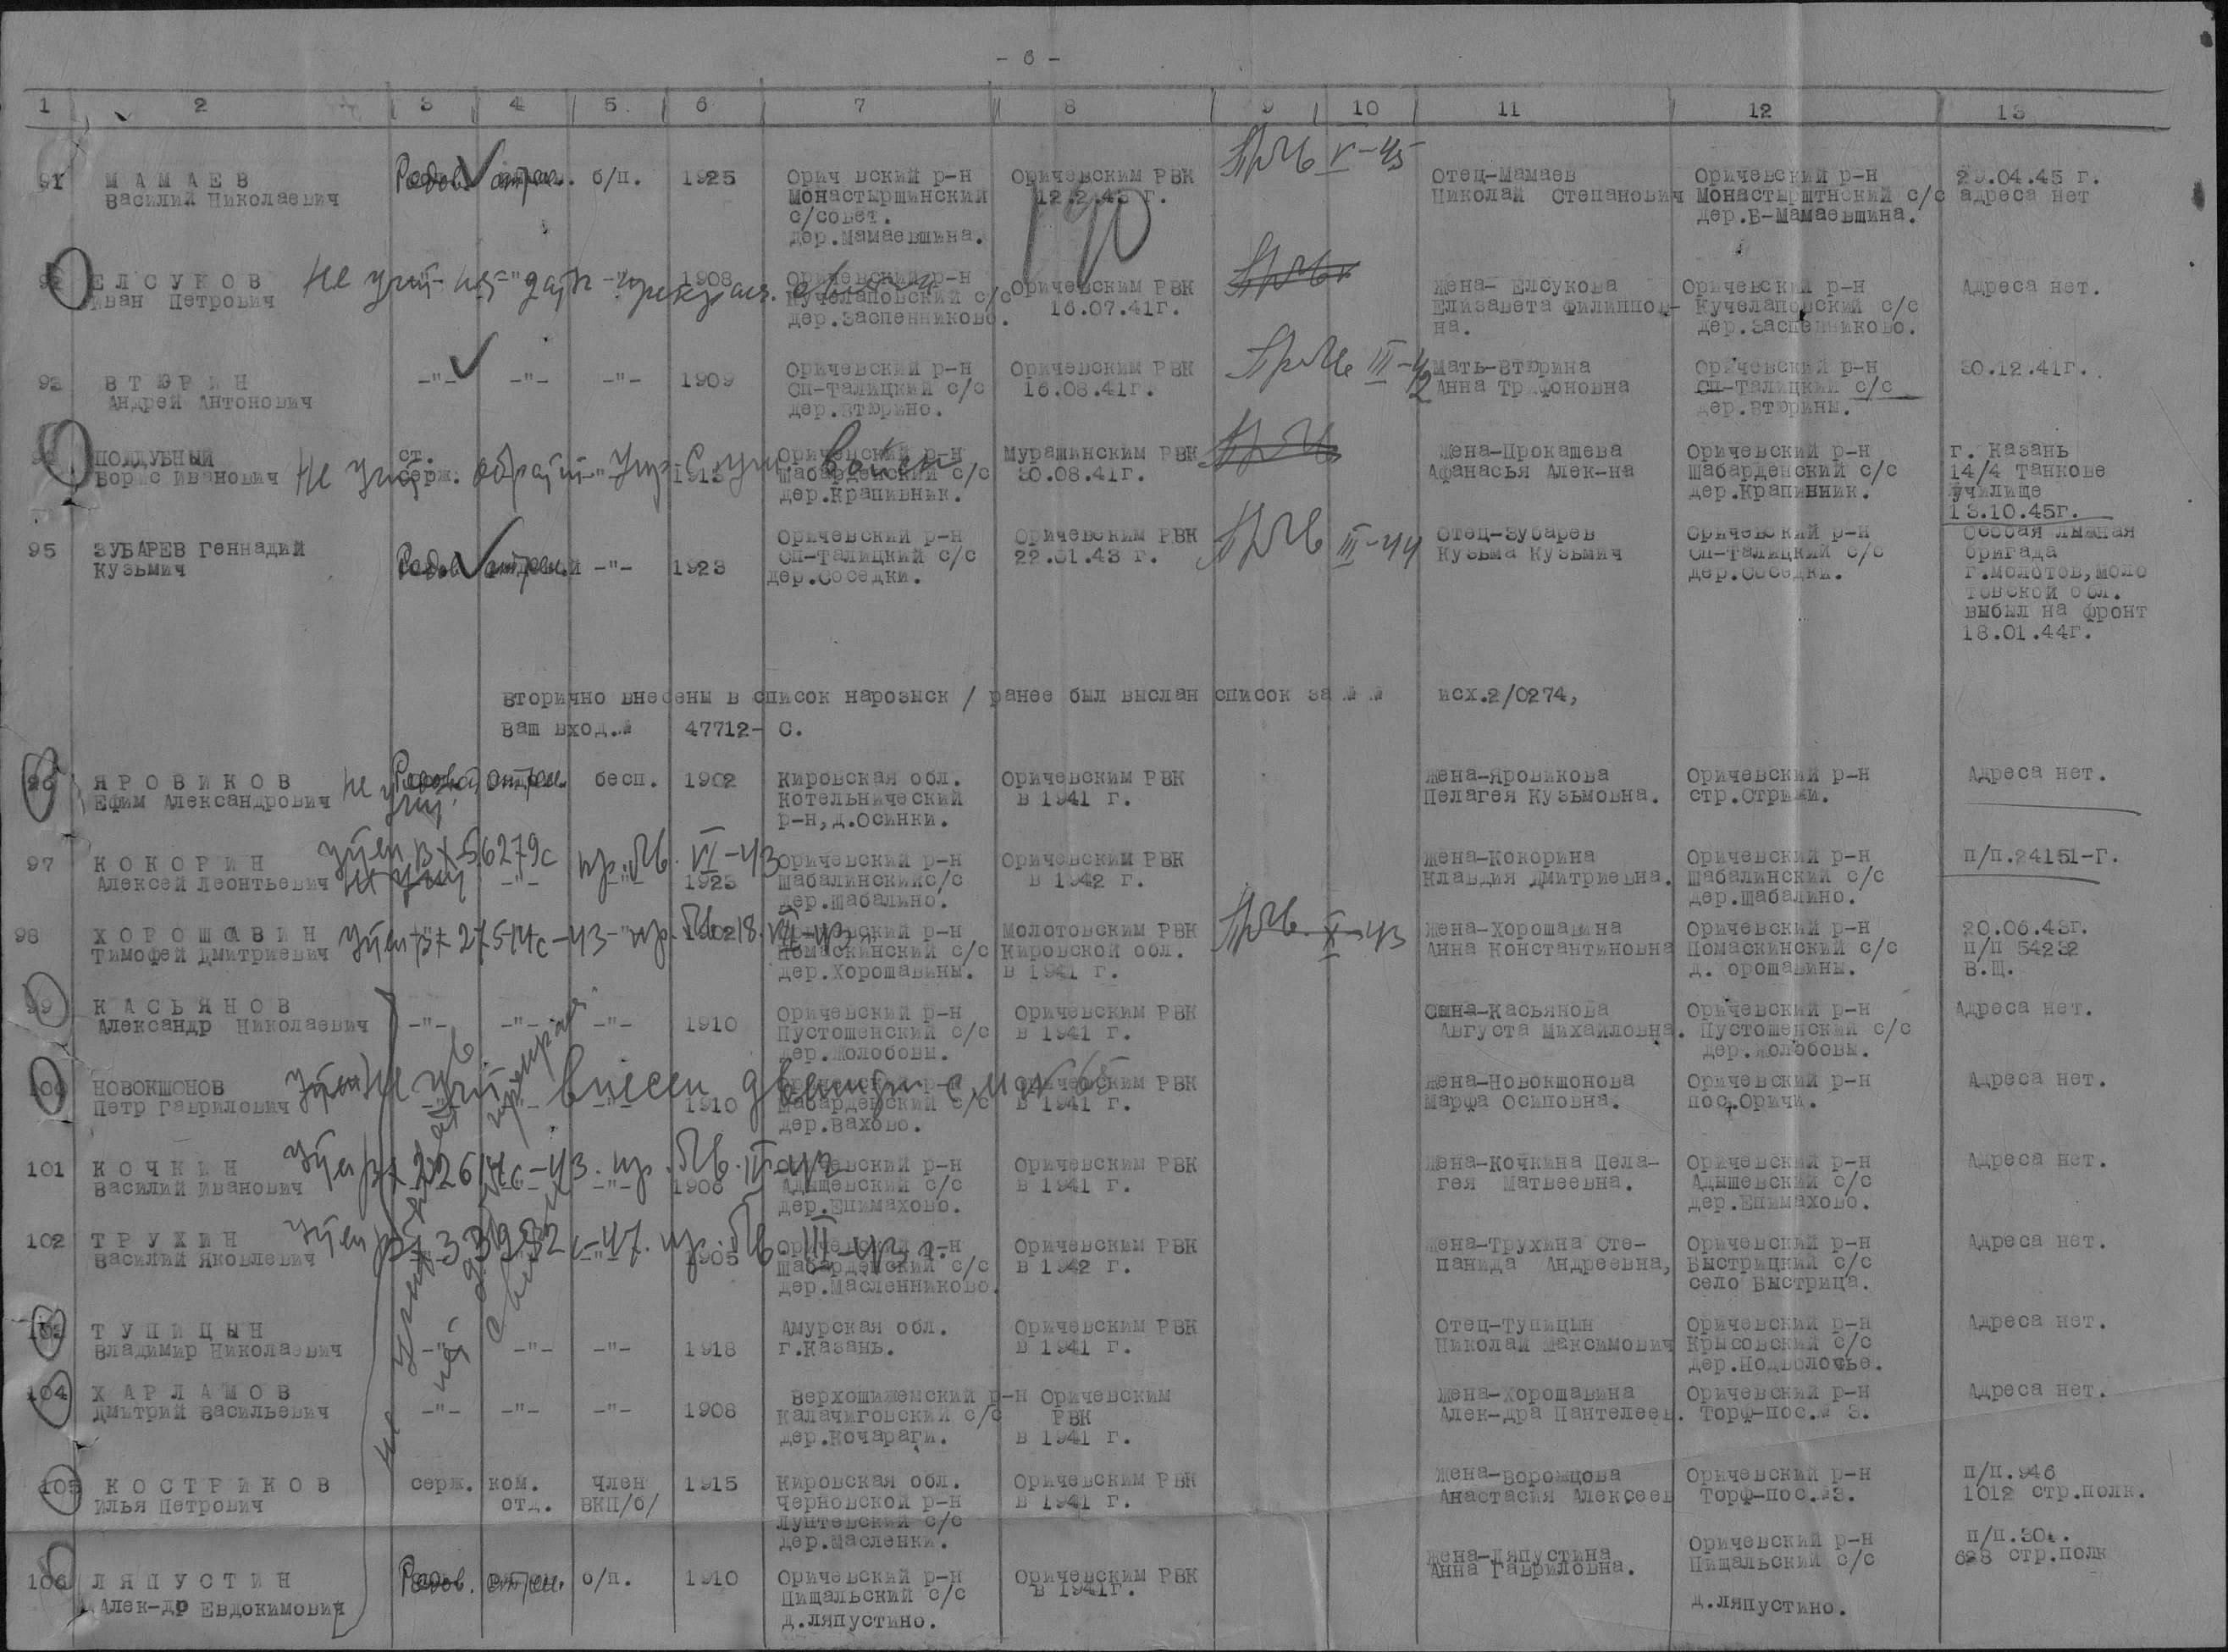 - 6 -
1 2 3 4 5 6 7 8 9 10 11 12 13
91 МАМАЕВ Василий Николаевич
Рядов. стрел. б/п. 1925
Орич вский р-н
Монастырщинский
с/совет.
дер.Мамаевщина.
Оричевским РВК
12.2.43 г.
190
пр.б/в V-45
Отец-Мамаев
Николай Степанович
Оричевский р-н
Монастырштнский с/с
дер.Б-Мамаевщина.
29.04.45 г.
адреса нет
92 ЕЛСУКОВ
Иван Петрович
Не учит- нет дат прекращ. связи
1908
Оричевский р-н
Кучелаповский с/с
дер.Заспенниково.
Оричевским РВК
16.07.41г.
Жена- Елсукова
Елизавета Филиппов-
на.
Оричевский р-н
Кучелаповский с/с
дер.Заспенниково.
Адреса нет.
93 ВТЮРИН
Андрей Антонович
-"- -"- -"- 1909
Оричевский р-н
Сп-Талицкий с/с
дер.Втюрино.
Оричевским РВК
16.08.41г.
пр.б/в III-42
Мать-Втюрина
Анна Трифоновна
Оричевский р-н
Сп-Талицкий с/с
дер.Втюрины.
30.12.41г.
ПОДДУБНЫЙ
Борис Иванович
ст.
серж. -"- 1913
Оричевский р-н
Шабарденский с/с
дер.Крапивник.
Мурашинским РВК
30.08.41г.
Жена-Прокашева
Афанасья Алек-на
Оричевский р-н
Шабарденский с/с
дер.Крапивник.
г. Казань
14/4 танкове
училище
13.10.45г.
95 ЗУБАРЕВ Геннадий
Кузьмич
Рядов -"- 1923
Оричевский р-н
Сп-Талицкий с/с
дер.Соседки.
Оричевским РВК
22.01.43 г.
пр.б/в III-44
Отец-Зубарев
Кузьма Кузьмич
Оричевский р-н
Сп-Талицкий с/с
дер.Соседки.
Особая лыжная
бригада
г.Молотов,Моло
товской обл.
выбыл на фронт
18.01.44г.
Вторично внесены в список нарозыск / ранее был выслан список за № № исх.2/0274,
Ваш вход.№ 47712- С.
96 ЯРОВИКОВ
Ефим Александрович
Не учит.
Рядовой стрел. бесп. 1902
Кировская обл.
Котельнический
р-н,д.Осинки.
Оричевским РВК
в 1941 г.
Жена-Яровикова
Пелагея Кузьмовна.
Оричевский р-н
стр.Стрижи.
Адреса нет.
97 КОКОРИН
Алексей Леонтьевич
учтен вх 56279с пр.б/в. VI-43
-"- 1923
Оричевский р-н
Шабалинскийс/с
дер.Шабалино.
Оричевским РВК
в 1942 г.
Жена-Кокорина
Клавдия Дмитриевна.
Оричевский р-н
Шабалинский с/с
дер.Шабалино.
п/п.24151-Г.
98 ХОРОШАВИН
Тимофей Дмитриевич
1902
Помаскинский с/с
дер.Хорошавины.
Молотовским РВК
Кировской обл.
в 1941 г.
пр.б/в. X-43
Жена-Хорошавина
Анна Константиновна
Оричевский р-н
Помаскинский с/с
д. орошавины.
20.06.43г.
п/п 54232
В.Щ.
99 КАСЬЯНОВ
Александр Николаевич
-"- -"- -"- 1910
Оричевский р-н
Пустошенский с/с
дер.Жолобовы.
Оричевским РВК
в 1941 г.
Жена-Касьянова
Августа Михайловна.
Оричевский р-н
Пустошенский с/с
дер.Жолобовы.
Адреса нет.
100 НОВОКШОНОВ
Петр Гаврилович
внесен
-"- -"- -"- 1910
Оричевский р-н
Шабарденский с/с
дер.Вахово.
Оричевским РВК
в 1941 г.
Жена-Новокшонова
Марфа Осиповна.
Оричевский р-н
пос.Оричи.
Адреса нет.
101 КОЧКИН
Василий Иванович
учтен вх 22614с-43. пр.б/в.
-"- 1906
Оричевский р-н
Адышевский с/с
дер.Епимахово.
Оричевским РВК
в 1941 г.
Жена-Кочкина Пела-
гея Матвеевна.
Оричевский р-н
Адышевский с/с
дер.Епимахово.
Адреса нет.
102 ТРУХИН
Василий Яковлевич
учтен
1905
Оричевский р-н
Шабарденский с/с
дер.Масленниково.
Оричевским РВК
в 1942 г.
Жена-Трухина Сте-
панида Андреевна,
Оричевский р-н
Быстрицкий с/с
село Быстрица.
Адреса нет.
103 ТУПИЦЫН
Владимир Николаевич
-"- -"- -"- 1918
Амурская обл.
г.Казань.
Оричевским РВК
в 1941 г.
Отец-Тупицын
Николай Максимович
Оричевский р-н
Крысовский с/с
дер.Подволочье.
Адреса нет.
104 ХАРЛАМОВ
Дмитрий Васильевич
-"- -"- -"- 1908
Верхошижемский р-н
Калачиговский с/с
дер.Кочараги.
Оричевским
РВК
в 1941 г.
Жена-Хорошавина
Алек-дра Пантелеев.
Оричевский р-н
Торф-пос.№ 3.
Адреса нет.
105 КОСТРИКОВ
Илья Петрович
серж. ком.
отд.
член
ВКП/б/
1915
Кировская обл.
Черновской р-н
Лунтевский с/с
дер.Масленки.
Оричевским РВК
в 1941 г.
Жена-Воромцова
Анастасия Алексеев
Оричевский р-н
Торф-пос.№3.
п/п.946
1012 стр.полк.
106 ЛЯПУСТИН
Алек-др Евдокимович
Рядов. стрел. б/п. 1910
Оричевский р-н
Пищальский с/с
д.Ляпустино.
Оричевским РВК
в 1941г.
Жена-Ляпустина
Анна Гавриловна.
Оричевский р-н
Пищальский с/с
д.Ляпустино.
п/п.30
628 стр.полк